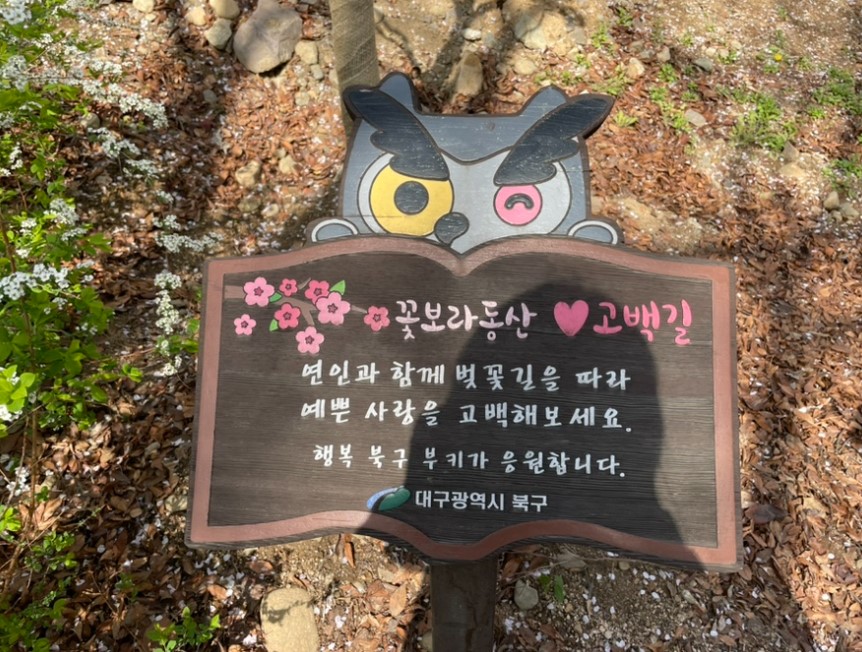 꽃보라동산 ♥ 고백길
연인과 함께 벚꽃길을 따라
예쁜 사랑을 고백해보세요.
행복 북구 부키가 응원합니다.
대구광역시 북구